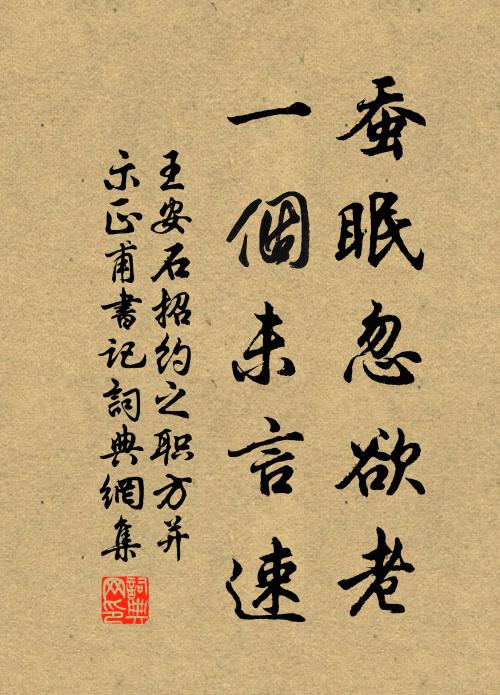 蚕眠忽欲老
一個未言速
王安石招约之职方并
示正甫書记詞典網集
詞典网印